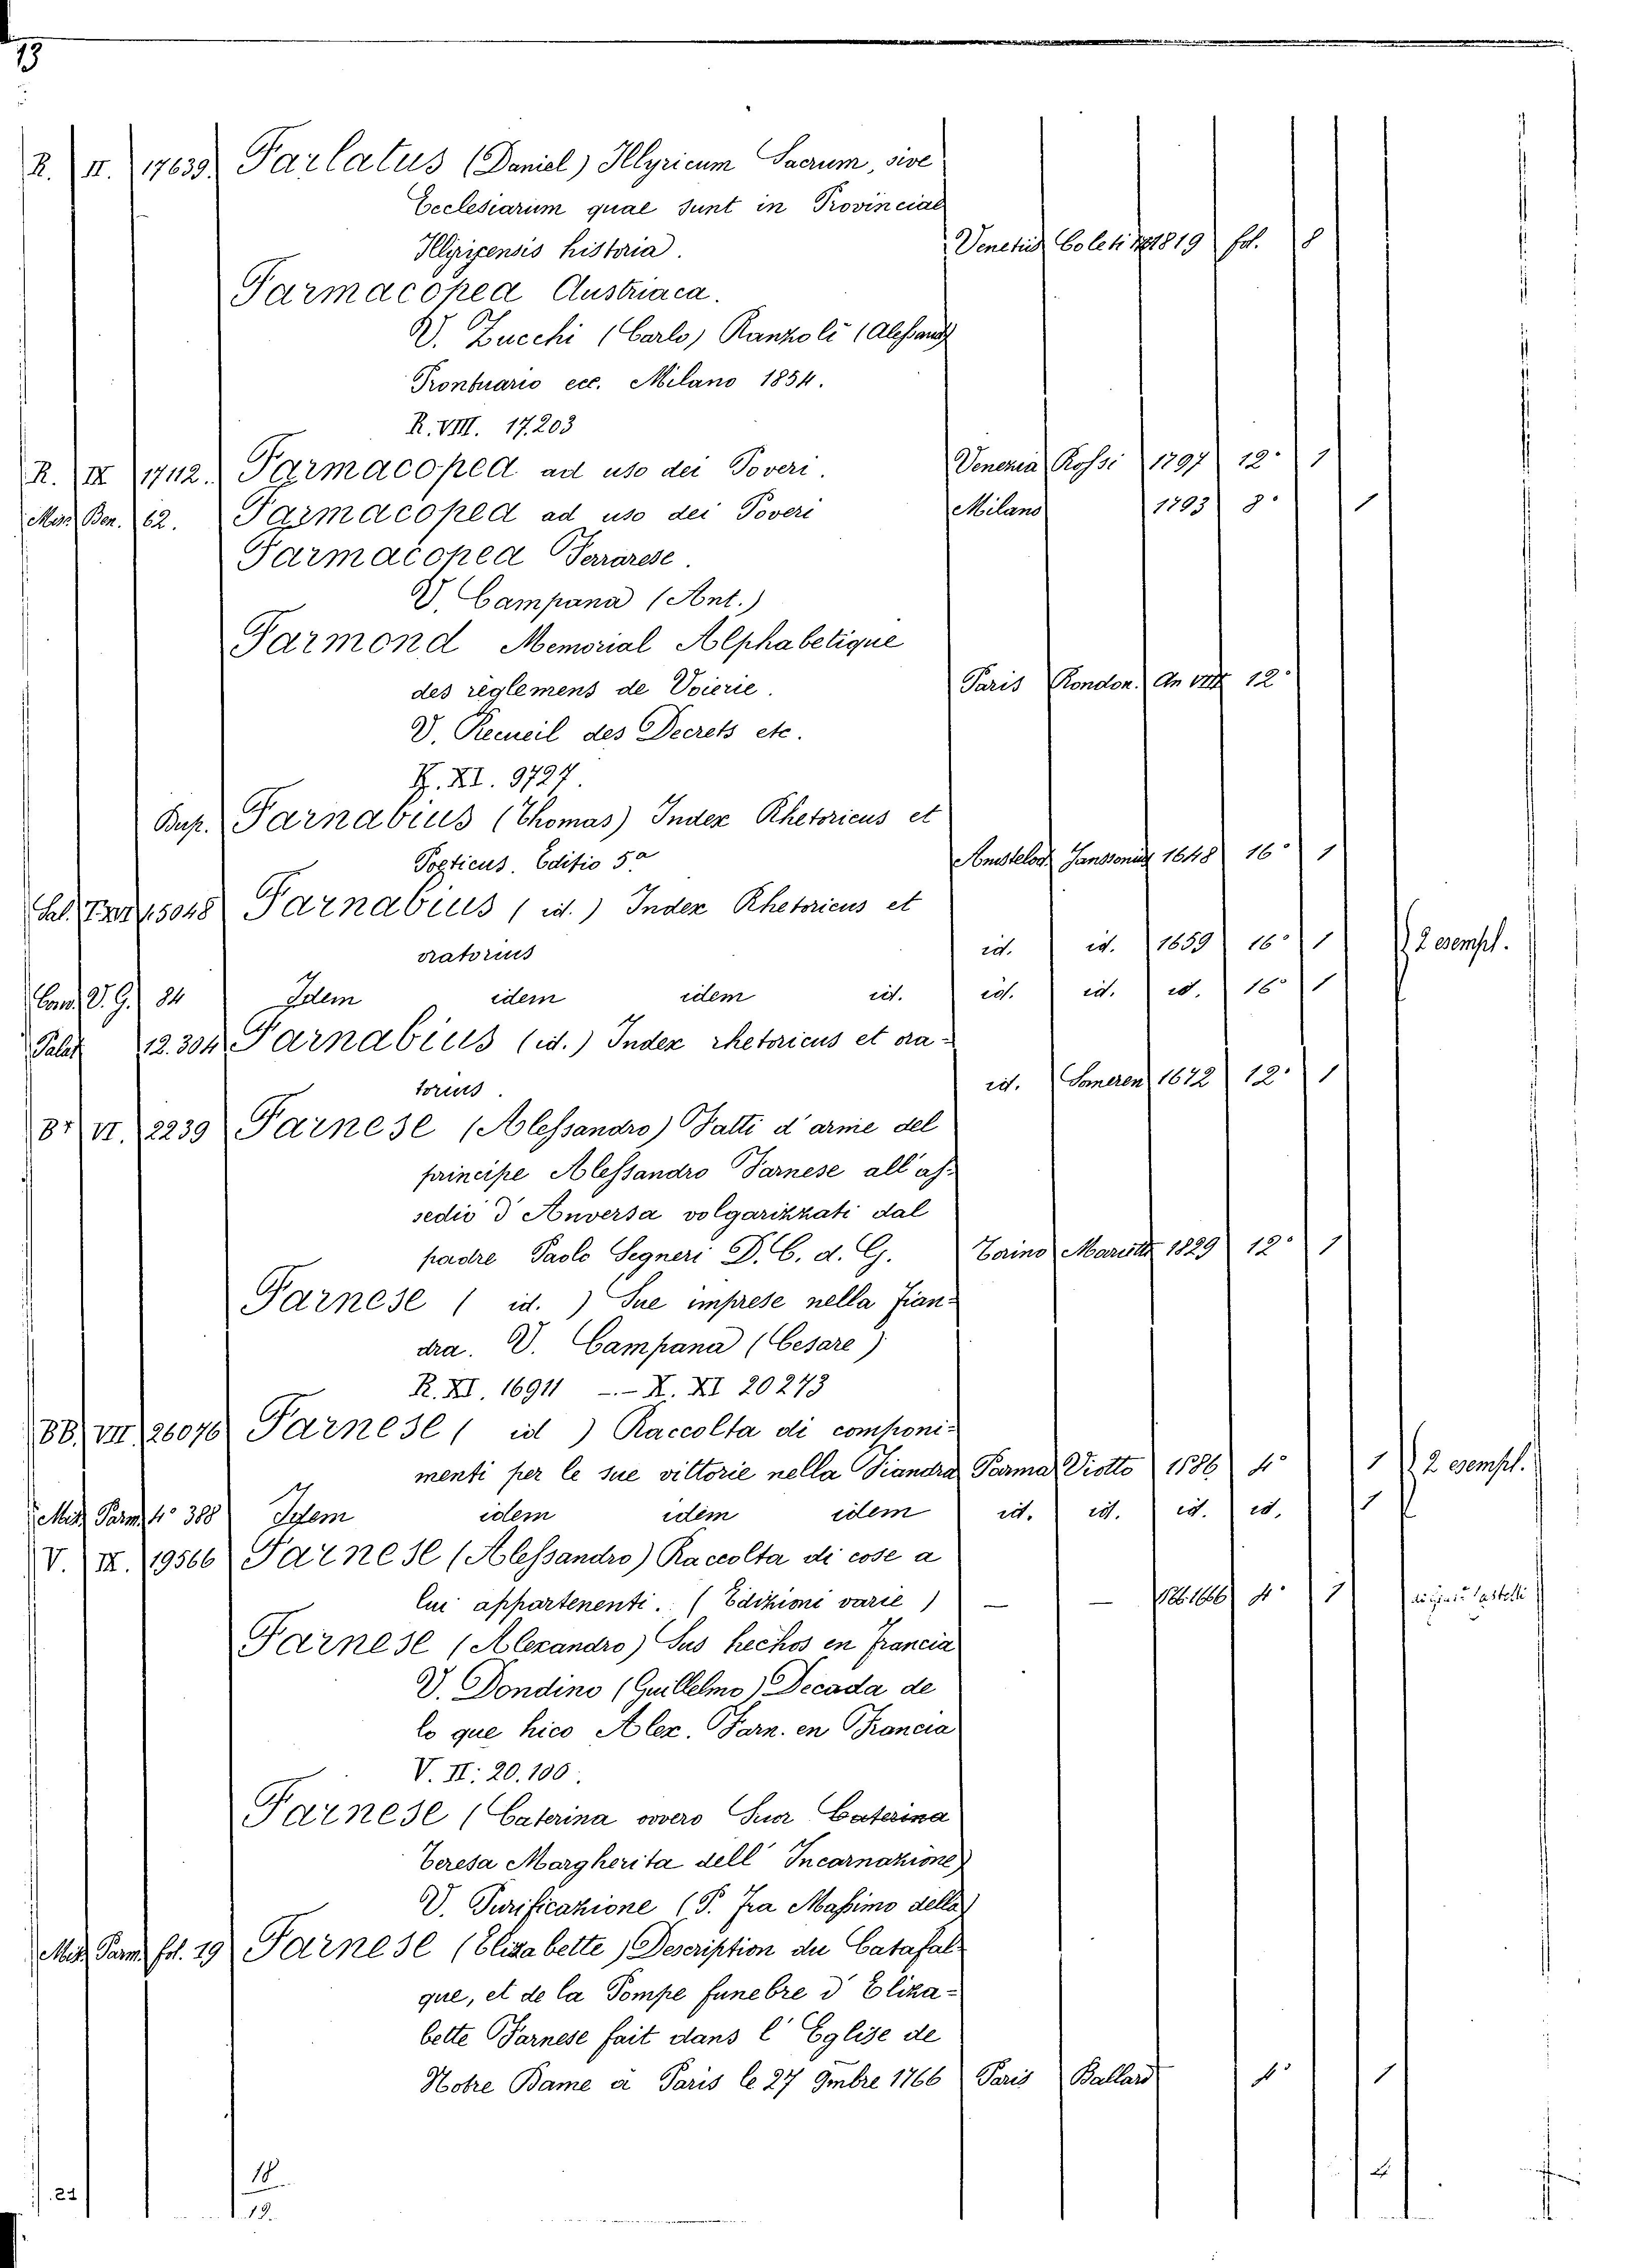 13
R. II. 17639. Farlatus (Daniel) Illyricum Sacrum, sive
Ecclesiarum quae sunt in Provinciae
Illyricensis historia. Venetiis Coleti 1819 fol. 8
Farmacopea Austriaca.
V. Zucchi (Carlo) Ranzoli (Alessand
Prontuario ecc. Milano 1854.
R. VIII. 17.203
R. IX 17112. Farmacopea ad uso dei Poveri. Venezia Rossi 1797 12° 1
Misc. Ben. 62. Farmacopea ad uso dei Poveri Milano 1793 8° 1
Farmacopea Ferrarese.
V. Campana (Ant.)
Farmond Memorial Alphabetique
des règlemens de Voierie. Paris Rondon. An VIII 12°
V. Recueil des Decrets etc.
XI. 9727.
Bup. Farnabius (Thomas) Index Rhetoricus et
Poeticus. Editio 5ª Amstelod. Janssonius 1648 16° 1
Sal. 15048 Farnabius (id.) Index Rhetoricus et
oratorius id. id. 1659 16° 1 2 esempl.
Cam. V. G. 84 Idem idem idem id. id. id. id. 16° 1
Palat. 12.304 Farnabius (id.) Index rhetoricus et ora-
torius. id. Someren 1672 12° 1
Bᵛ VI. 2239 Farnese (Alessandro) Fatti d'arme del
principe Alessandro Farnese all'as-
sedio d'Anversa volgarizzati dal
padre Paolo Segneri D. C. d. G. Torino Marietti 1829 12° 1
Farnese ( id. ) Sue imprese nella Fian-
dra. V. Campana (Cesare)
R. XI. 16911 -.- X. XI 20273
BB. VII. 26076 Farnese ( id ) Raccolta di componi-
menti per le sue vittorie nella Fiandra Parma Viotto 1586 4° 1 2 esempl.
Misc. Parm. 4° 388 Idem idem idem idem id. id. id. id. 1
V. IX. 19566 Farnese (Alessandro) Raccolta di cose a
lui appartenenti. (Edizioni varie) — — 1586.1666 4° 1
Farnese (Alexandro) Sus hechos en Francia
V. Dondino (Guillelmo) Decada de
lo que hico Alex. Farn. en Francia
V. II: 20.100.
Farnese (Caterina ovvero Suor Caterina
Teresa Margherita dell'Incarnazione)
V. Purificazione (P. Fra Massimo della)
Misc. Parm. fol. 19 Farnese (Elisabette) Description du Catafal-
que, et de la Pompe funebre d'Eliza-
bette Farnese fait dans l'Eglise de
Notre Dame à Paris le 27 9mbre 1766 Paris Ballard 4° 1
18
19.
21
2